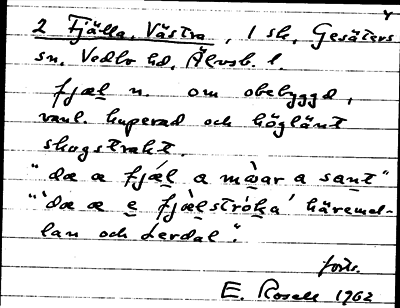 2 Fjälla, Västra, 1 sk, Gesäters
sn. Vedbo hd, Älvsb. l.
fjæl n. om obebyggd,
vanl. kuperad och höglänt
skogstrakt.
"dæ æ fjæl a mòar a sant"
"dæ æ e fjælstróka' häremel-
lan och Lerdal".
forts.
E. Rosell 1962